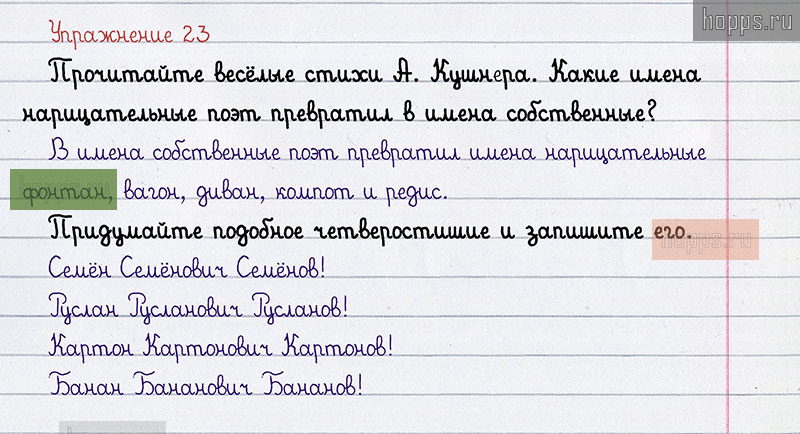 hopps.ru
Упражнение 23
Прочитайте весёлые стихи А. Кушнера. Какие имена
нарицательные поэт превратил в имена собственные?
В имена собственные поэт превратил имена нарицательные
фонтан, вагон, диван, компот и редис.
Придумайте подобное четверостишие и запишите его.
hopps.ru
Семён Семёнович Семёнов!
Руслан Русланович Русланов!
Картон Картонович Картонов!
Банан Бананович Бананов!